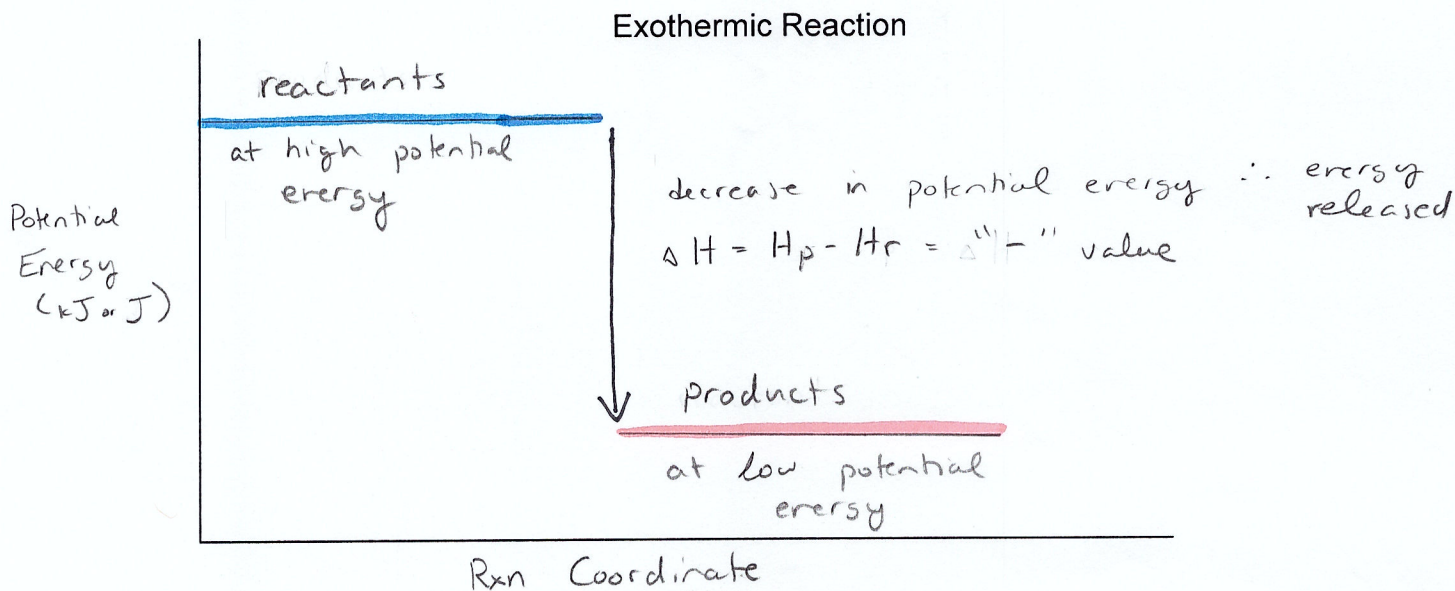 Exothermic Reaction
reactants
at high potential
energy
Potential
Energy
(kJ or J)
decrease in potential energy ∴ energy
released
△H = Hp - Hr = "-" value
products
at low potential
energy
Rxn Coordinate